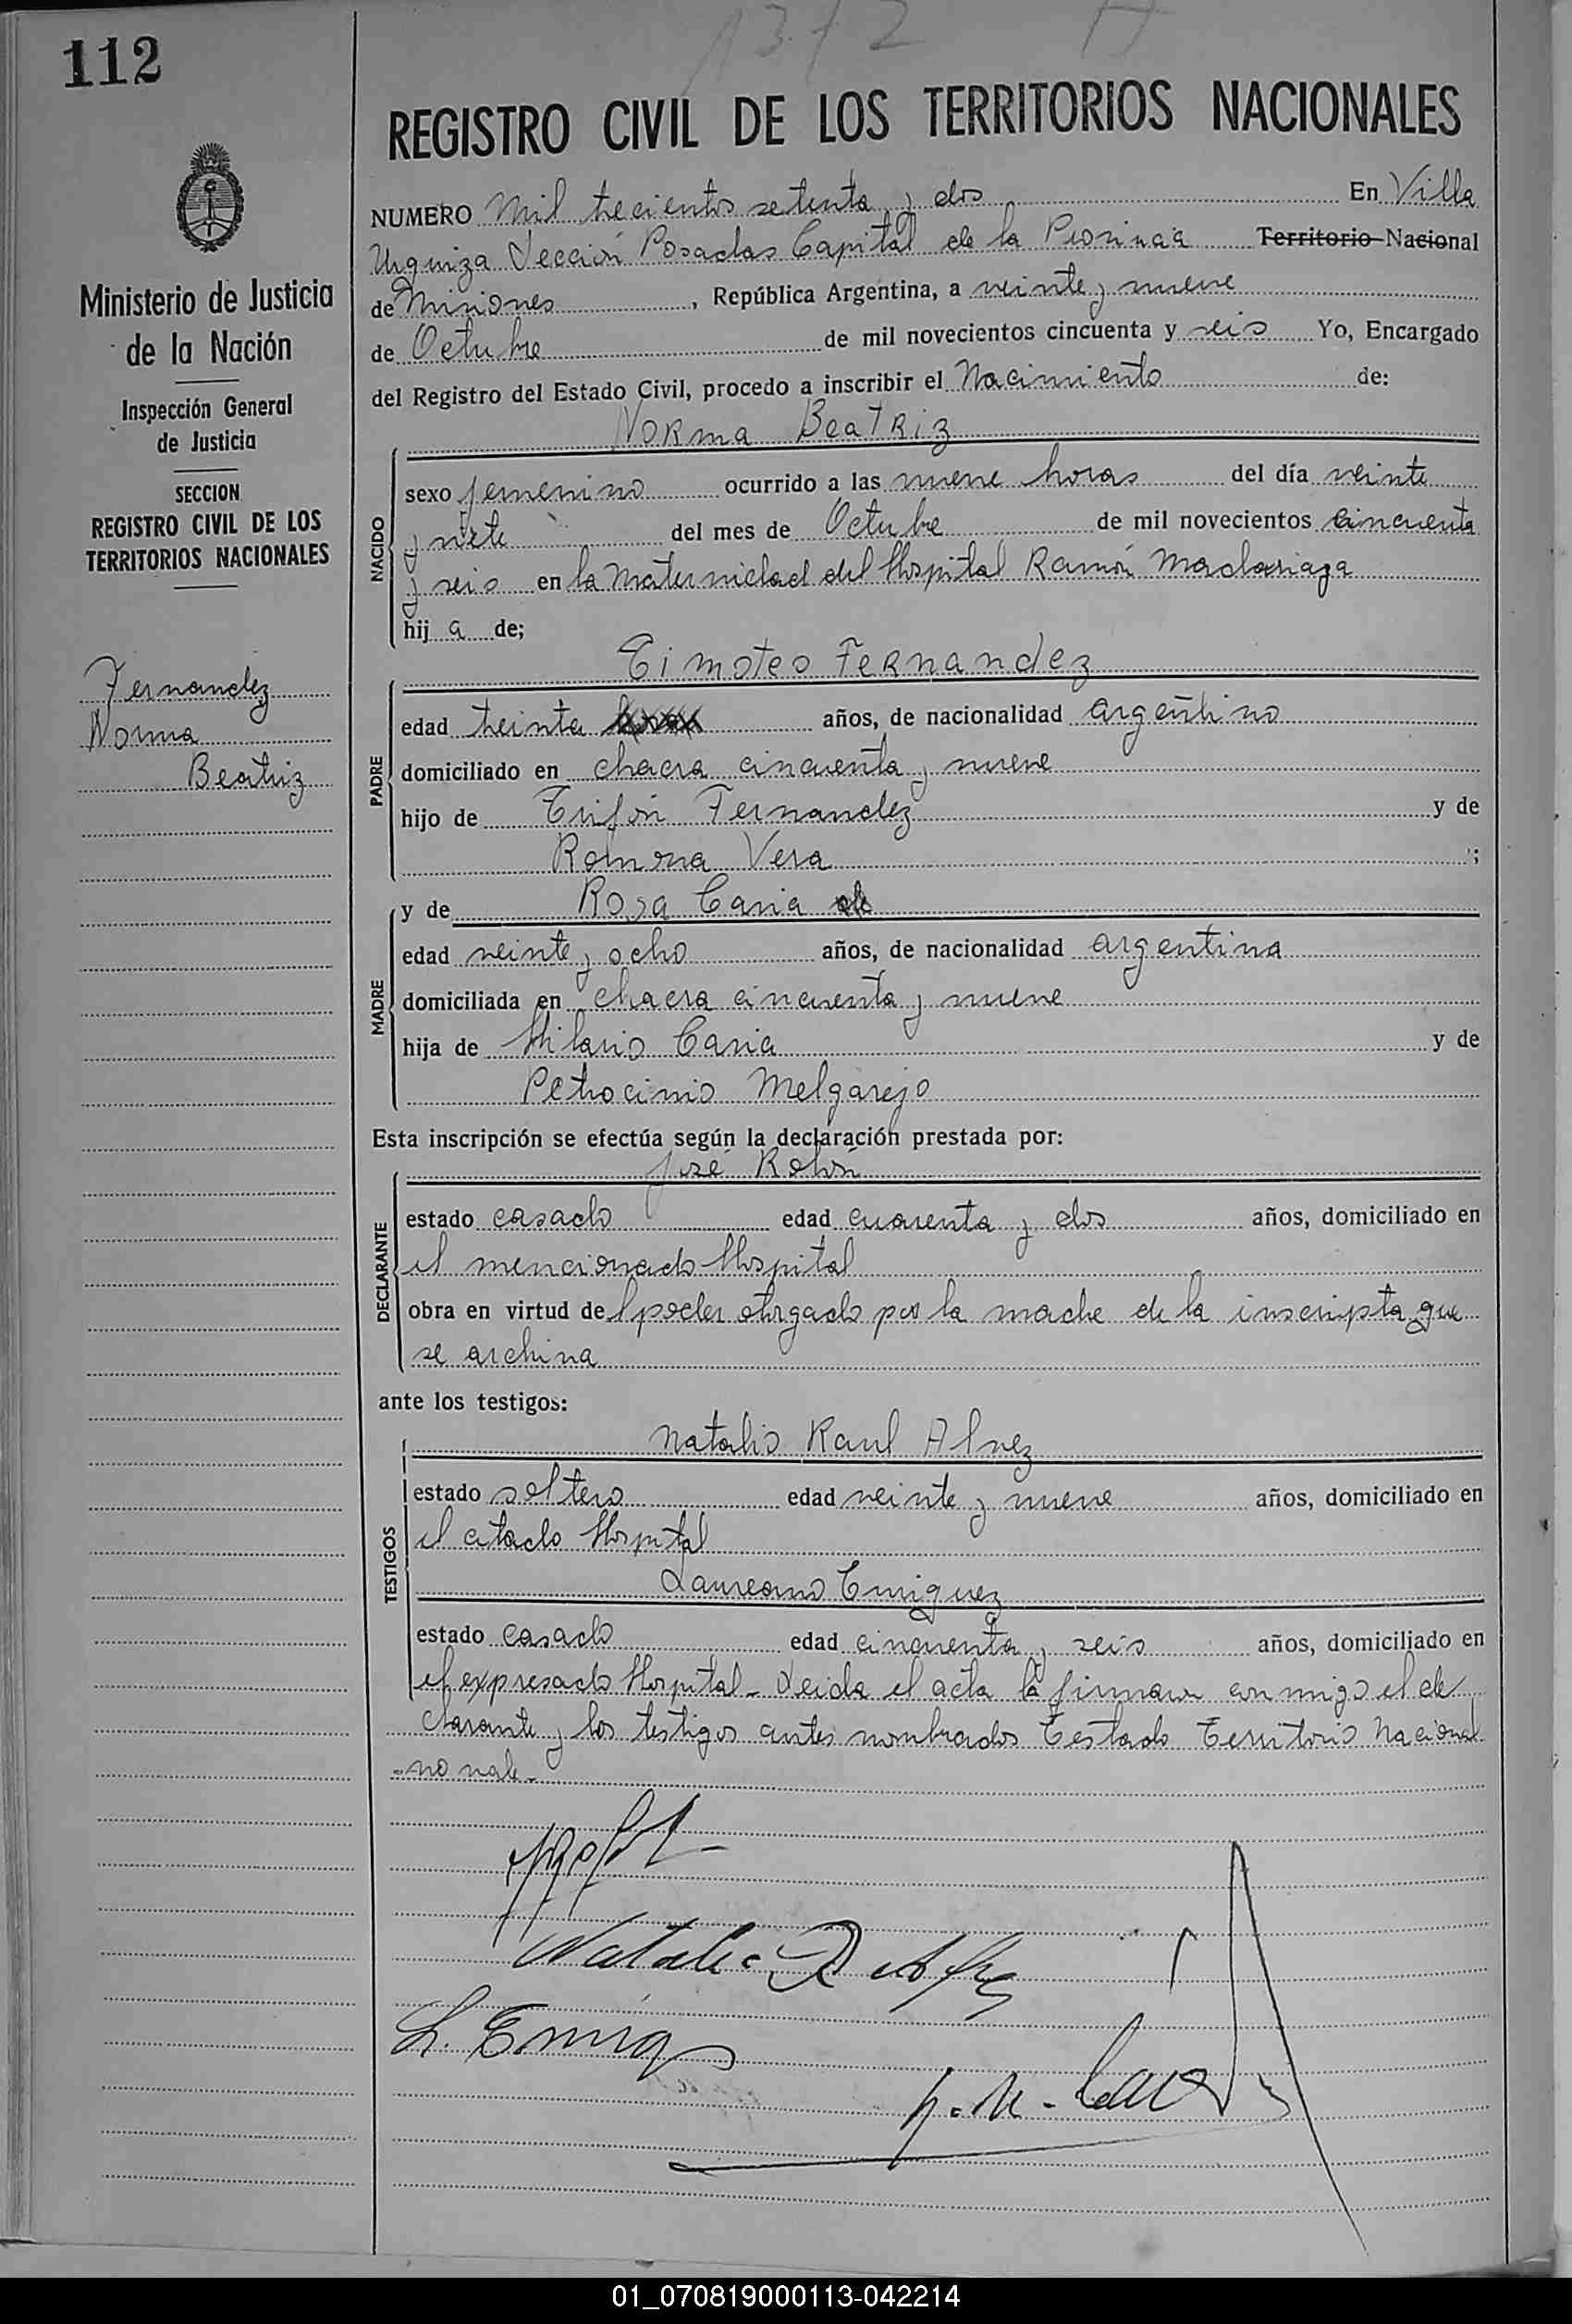 1372
112
REGISTRO CIVIL DE LOS TERRITORIOS NACIONALES
NUMERO Mil trecientos setenta y dos En Villa
Urquiza Sección Posadas Capital de la Provincia Territorio Nacional
de Misiones, República Argentina, a veinte y nueve
de Octubre de mil novecientos cincuenta y seis Yo, Encargado
del Registro del Estado Civil, procedo a inscribir el Nacimiento de:
Norma Beatriz
NACIDO
sexo femenino ocurrido a las nueve horas del día veinte
y siete del mes de Octubre de mil novecientos cincuenta
y seis en la Maternidad del Hospital Ramón Madariaga
hija de;
Timoteo Fernandez
PADRE
edad treinta años, de nacionalidad argentino
domiciliado en chacra cincuenta y nueve
hijo de Trifón Fernandez y de
Romona Vera ;
MADRE
y de Rosa Caria de
edad veinte y ocho años, de nacionalidad argentina
domiciliada en chacra cincuenta y nueve
hija de Hilario Caria y de
Petrocinio Melgarejo
Esta inscripción se efectúa según la declaración prestada por:
José Rolón
DECLARANTE
estado casado edad cuarenta y dos años, domiciliado en
el mencionado Hospital
obra en virtud del poder otorgado por la madre de la inscripta que
se archiva
ante los testigos:
Natalio Raul Alvez
TESTIGOS
estado soltero edad veinte y nueve años, domiciliado en
el citado Hospital
Laureano Enriguez
estado casado edad cincuenta y seis años, domiciliado en
el expresado Hospital - Leida el acta la firman conmigo el de
clarante y los testigos antes nombrados Testado Territorio Nacional
- no vale -
Ministerio de Justicia
de la Nación
Inspección General
de Justicia
SECCION
REGISTRO CIVIL DE LOS
TERRITORIOS NACIONALES
Fernandez
Norma
Beatriz
01_070819000113-042214